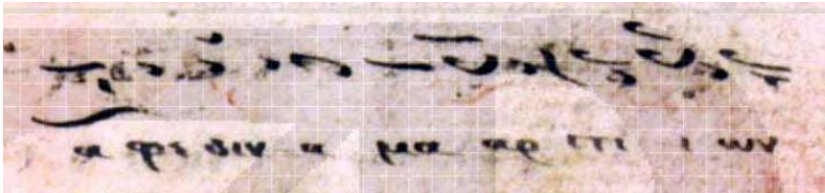 α φε σιν α μα αρ τι ι ων